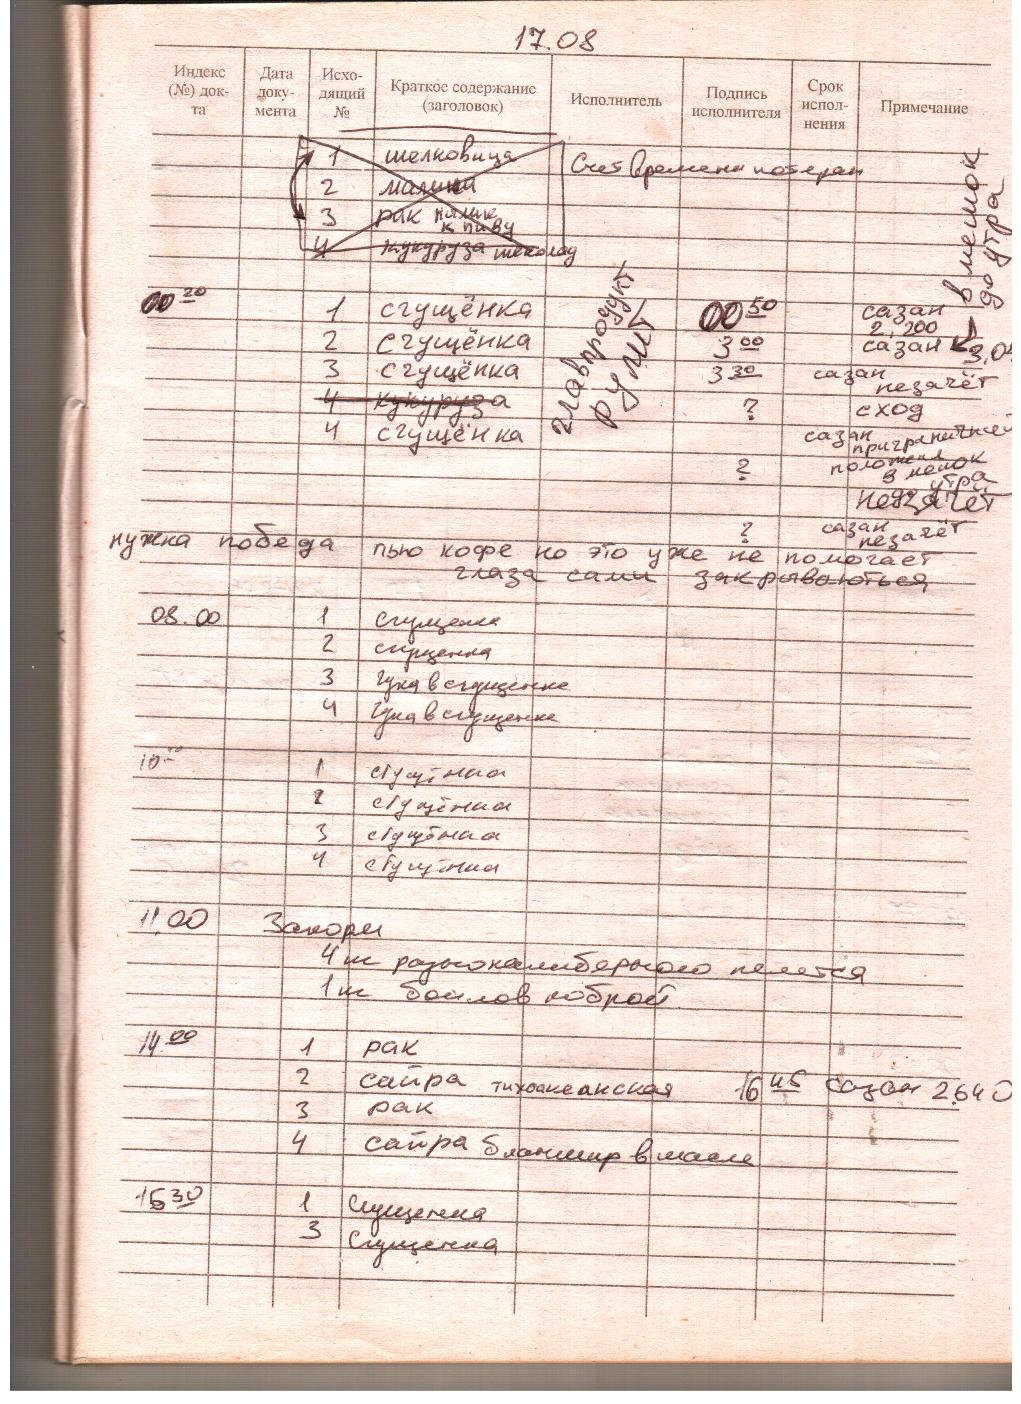 17.08
Индекс (№) док-та
Дата доку-мента
Исхо-дящий №
Краткое содержание (заголовок)
Исполнитель
Подпись исполнителя
Срок испол-нения
Примечание
1 шелковица Счет времени потерян
2 малина
3 рак к пиву
4 кукуруза шоколад
в мешок
до утра
главпродукт
рулит
00 20 1 сгущёнка 00 50 сазан
2,200
2 сгущёнка 3 00 сазан
3 сгущёнка 3 30 сазан
незачёт
4 кукуруза ? сход
4 сгущёнка сазан
приграничный
? положил
в мешок
утра
незачёт
? сазан
незачёт
нужна победа пью кофе но это уже не помогает
глаза сами закрываються
08.00 1 сгущенка
2 сгущенка
3 Чука в сгущенке
4 Чука в сгущенке
10 1 сгущёнка
2 сгущёнка
3 сгущёнка
4 сгущёнка
11.00 Закорм
4 шт разнокалиберного пелетса
1 шт бойлов коброй
14 00 1 рак
2 сайра тихоокеанская 16 45 сазан 2.640
3 рак
4 сайра бланшир в масле
15 30 1 Сгущенка
3 Сгущенка